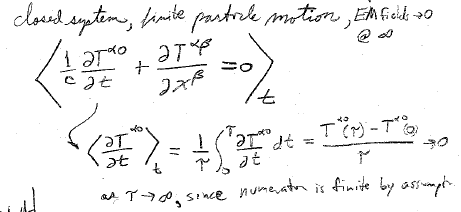 closed system, finite particle motion, EM fields → 0
@ ∞
⟨ 1/c ∂T^αo/∂t + ∂T^αβ/∂x^β = 0 ⟩_t
↳ ⟨ ∂T^αo/∂t ⟩_t = 1/τ ∫_0^τ ∂T^αo/∂t dt = (T^αo(τ) - T^αo(0))/τ → 0
as τ → ∞, since numerator is finite by assumpt.